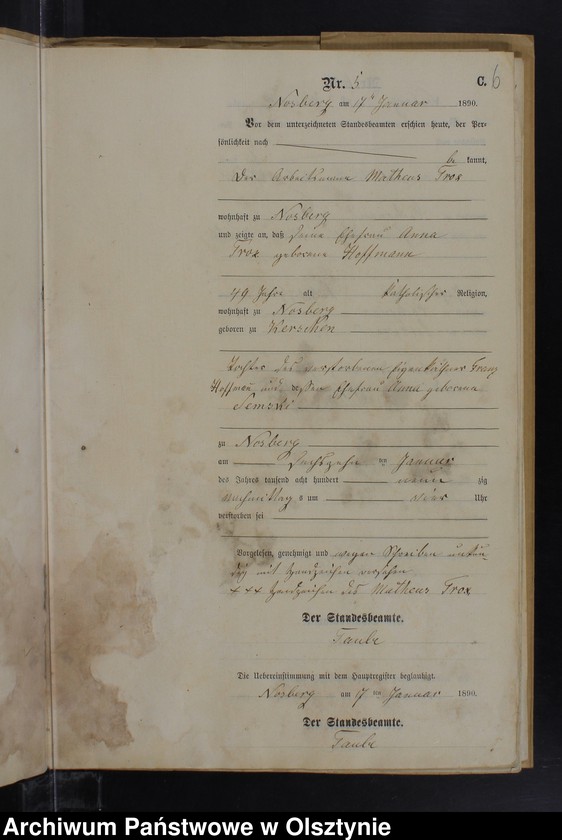 Nr. 5
C. 6
Nosberg am 17 Januar 1890.
Vor dem unterzeichneten Standesbeamten erschien heute, der Per-
sönlichkeit nach
be kannt,
der Arbeitsmann Matheus Trox
wohnhaft zu Nosberg
und zeigte an, daß seine Ehefrau Anna
Trox geborene Hoffmann
49 Jahre alt katholischer Religion,
wohnhaft zu Nosberg
geboren zu
Tochter des verstorbenen Eigenkäthner Franz
Hoffmann und dessen Ehefrau Anna geborene
Semski
zu Nosberg
am sechszehn ten Januar
des Jahres tausend acht hundert neun zig
nachmittag s um vier Uhr
verstorben sei
Vorgelesen, genehmigt und wegen Schreiben unkun
dig mit Handzeichen versehen
+++ Handzeichen des Matheus Trox
Der Standesbeamte.
Taube
Die Uebereinstimmung mit dem Hauptregister beglaubigt.
Nosberg am 17 ten Januar 1890.
Der Standesbeamte.
Taube
Archiwum Państwowe w Olsztynie